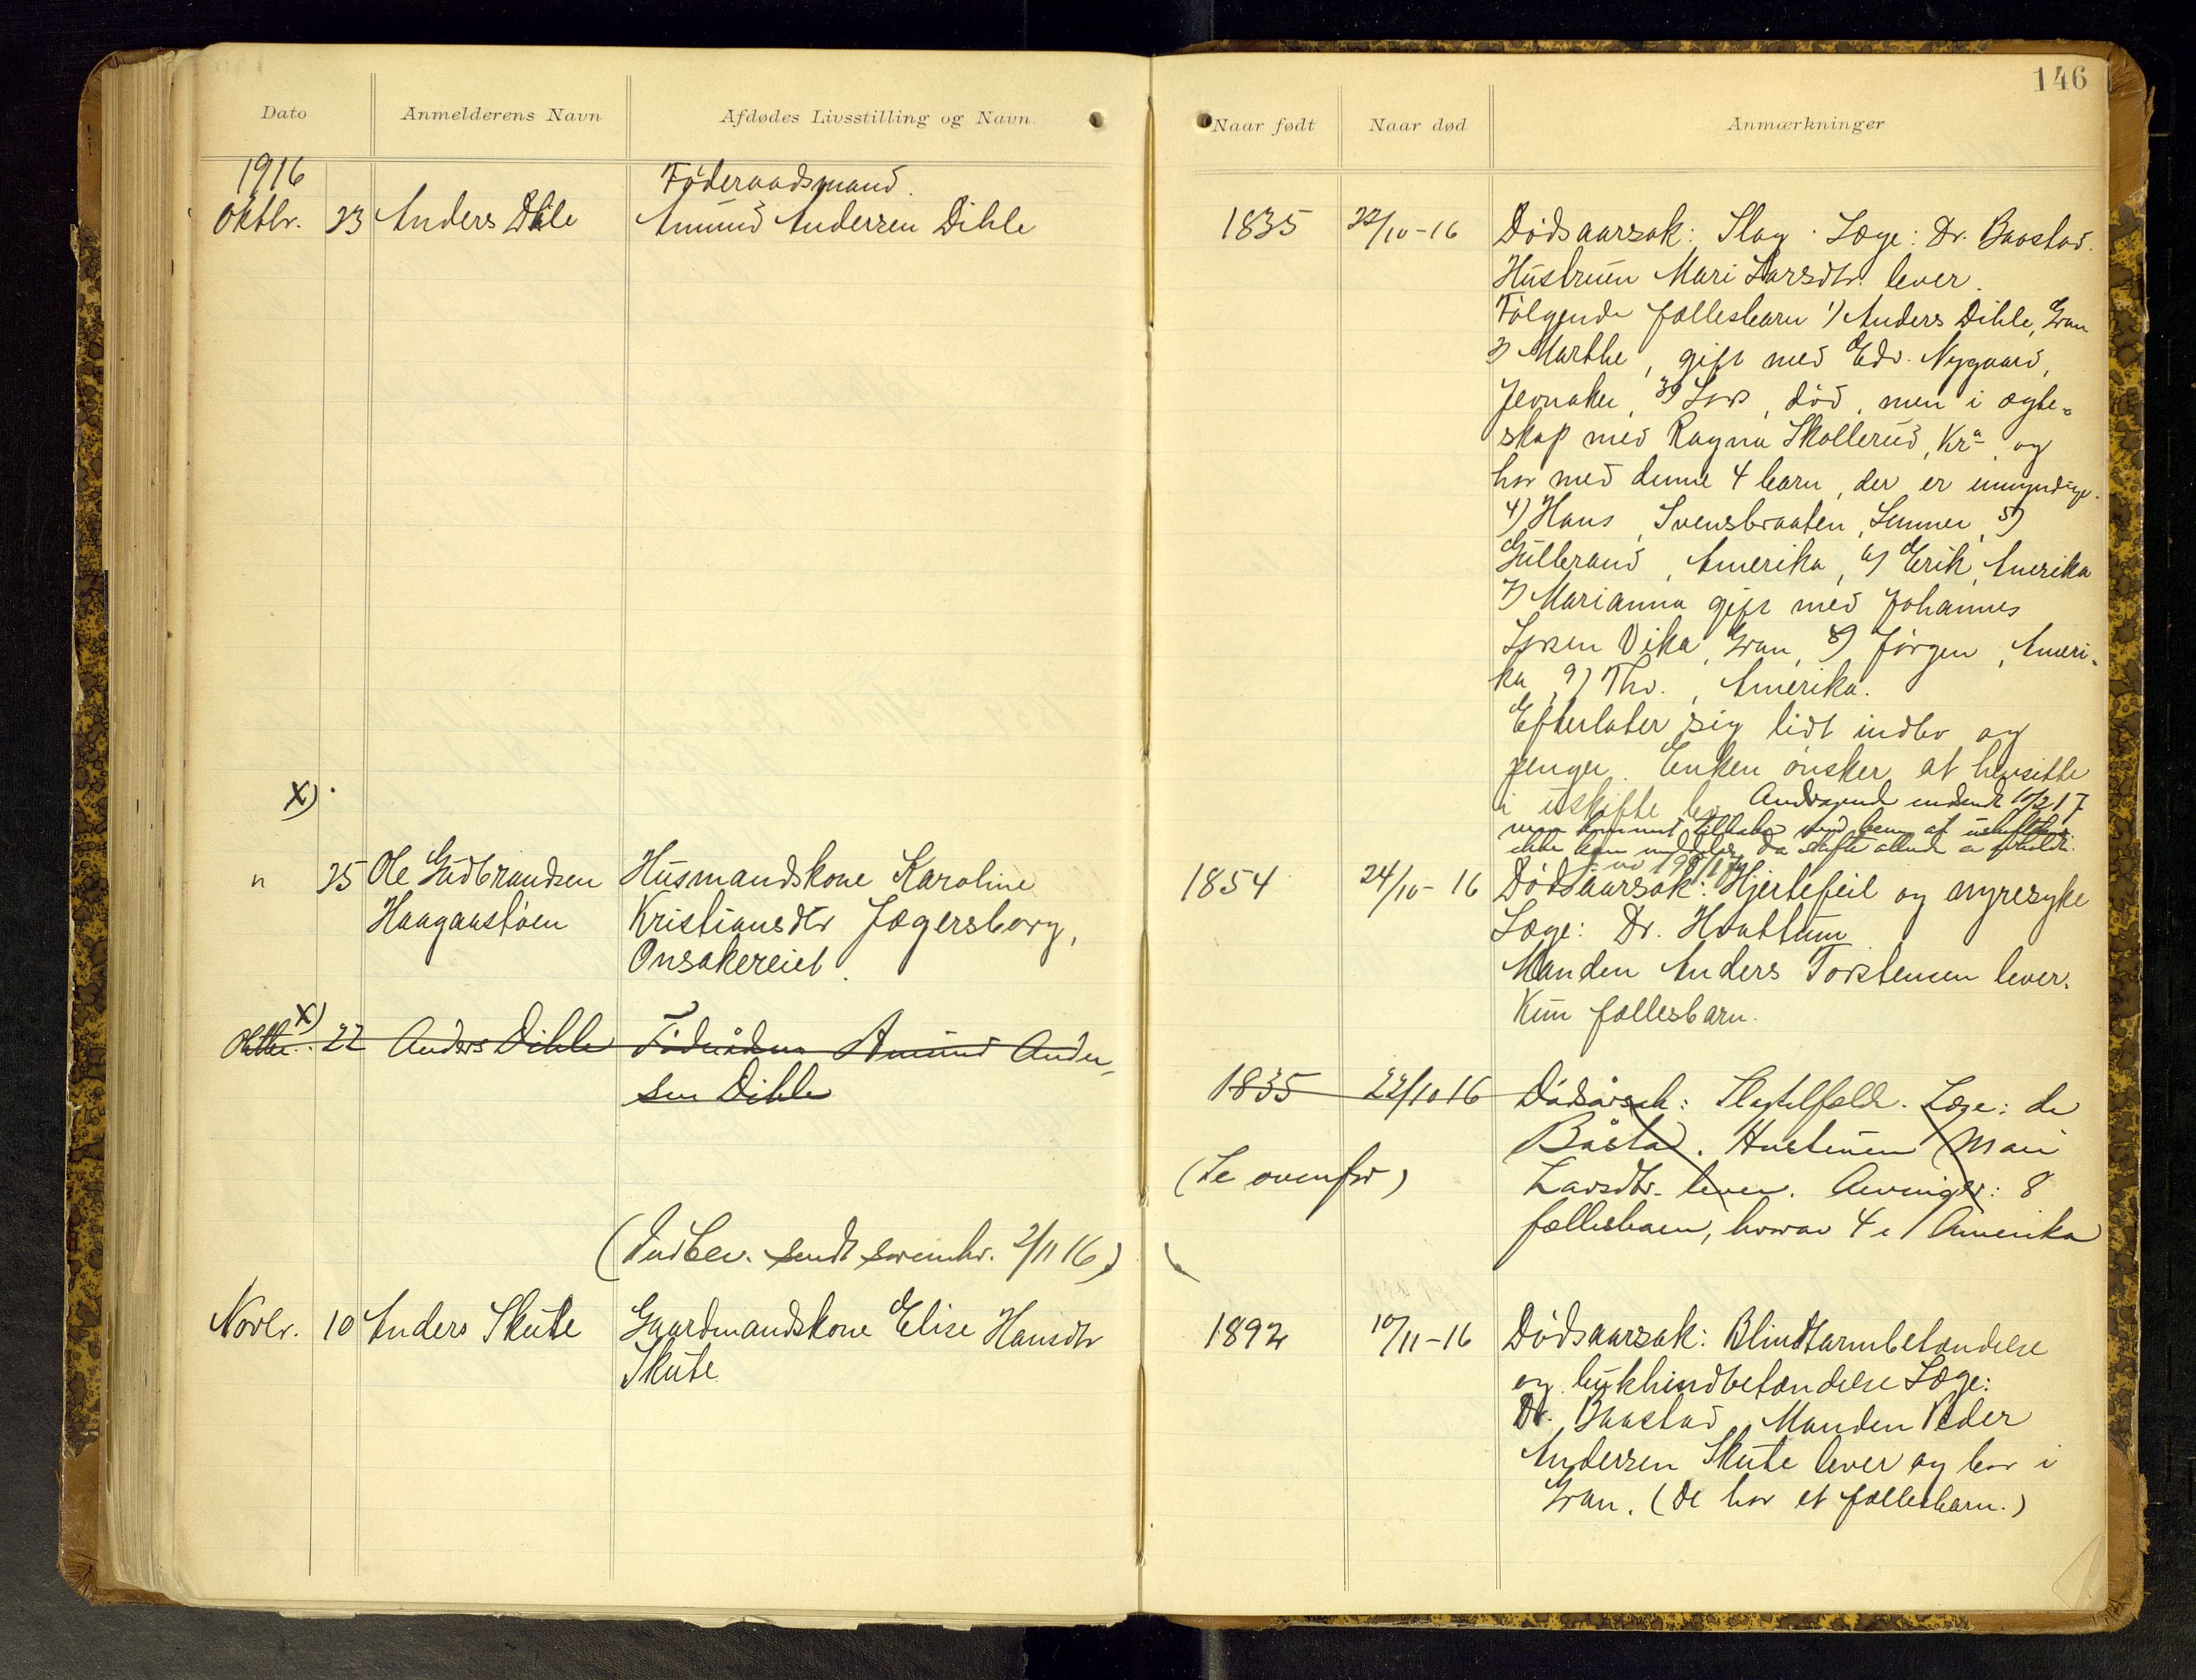 146
Dato Anmelderens Navn Afdødes Livsstilling og Navn.
Naar født Naar død Anmærkninger
1916
Føderaadsmand.
Oktbr. 23 Anders Dihle Amund Andersen Dihle
1835 22/10-16 Dødsaarsak: Slag. Læge: Dr. Baastad.
Hustruen Mari Larsdtr. lever.
Følgende fællesbarn 1) Anders Dihle, Gran
2) Marthe, gift med Edv. Nygaard,
Jevnaker, 3) Lars, død, men i ægte-
skap med Ragna Skollerud, Kr.a, og
har med denne 4 barn, der er umyndige.
4) Hans, Svensbraaten, Lunner, 5)
Gulbrand, Amerika, 6) Erik, Amerika
7) Marianna gift med Johannes
Larsen Vika, Gran, 8) Jørgen, Ameri-
ka, 9) Thv., Amerika.
Efterlater sig lidt indbo og
penger. Enken ønsker at hensitte
i uskifte bo Andragende indsendt 10/2 17
x)
" 25 Ole Gudbrandsen Husmandskone Karoline
Haagaastøen Kristiansdtr Jægersborg,
Onsakereiet.
1854 24/10-16 Dødsaarsak: Hjertefeil og nyresyke
Læge: Dr. Hvattum
Manden Anders Torstensen lever.
Kun fællesbarn.
x)
Oktbr. 22 Anders Dihle Føderådsm Amund Ander-
sen Dihle
1835 22/10 16 Dødsårsak: Slagtilfælde. Læge: dr
Båstad. Hustruen Mari
(Se ovenfor) Larsdtr. lever. Arvinger: 8
fællesbarn, hvorav 4 i Amerika
(Indber. sendt sorenskr. 2/11 16)
Novbr. 10 Anders Skute Gaardmandskone Elise Hansdtr
Skute
1892 10/11-16 Dødsaarsak: Blindtarmbetændelse
og bukhindbetændelse Læge:
Dr. Baastad. Manden Peder
Andersen Skute lever og bor i
Gran. (De har et fællesbarn.)